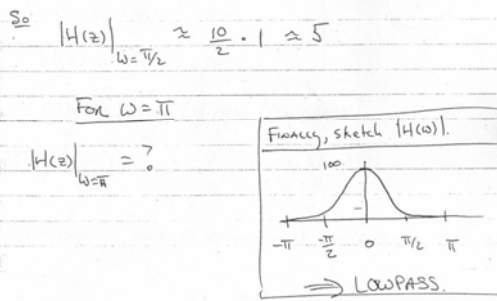 So
|H(z)| ω=π/2 ≈ 10/2 · 1 ≈ 5
For ω = π
|H(z)| ω=π = ?
Finally, sketch |H(ω)|.
100
-π -π/2 0 π/2 π
⇒ LOWPASS.